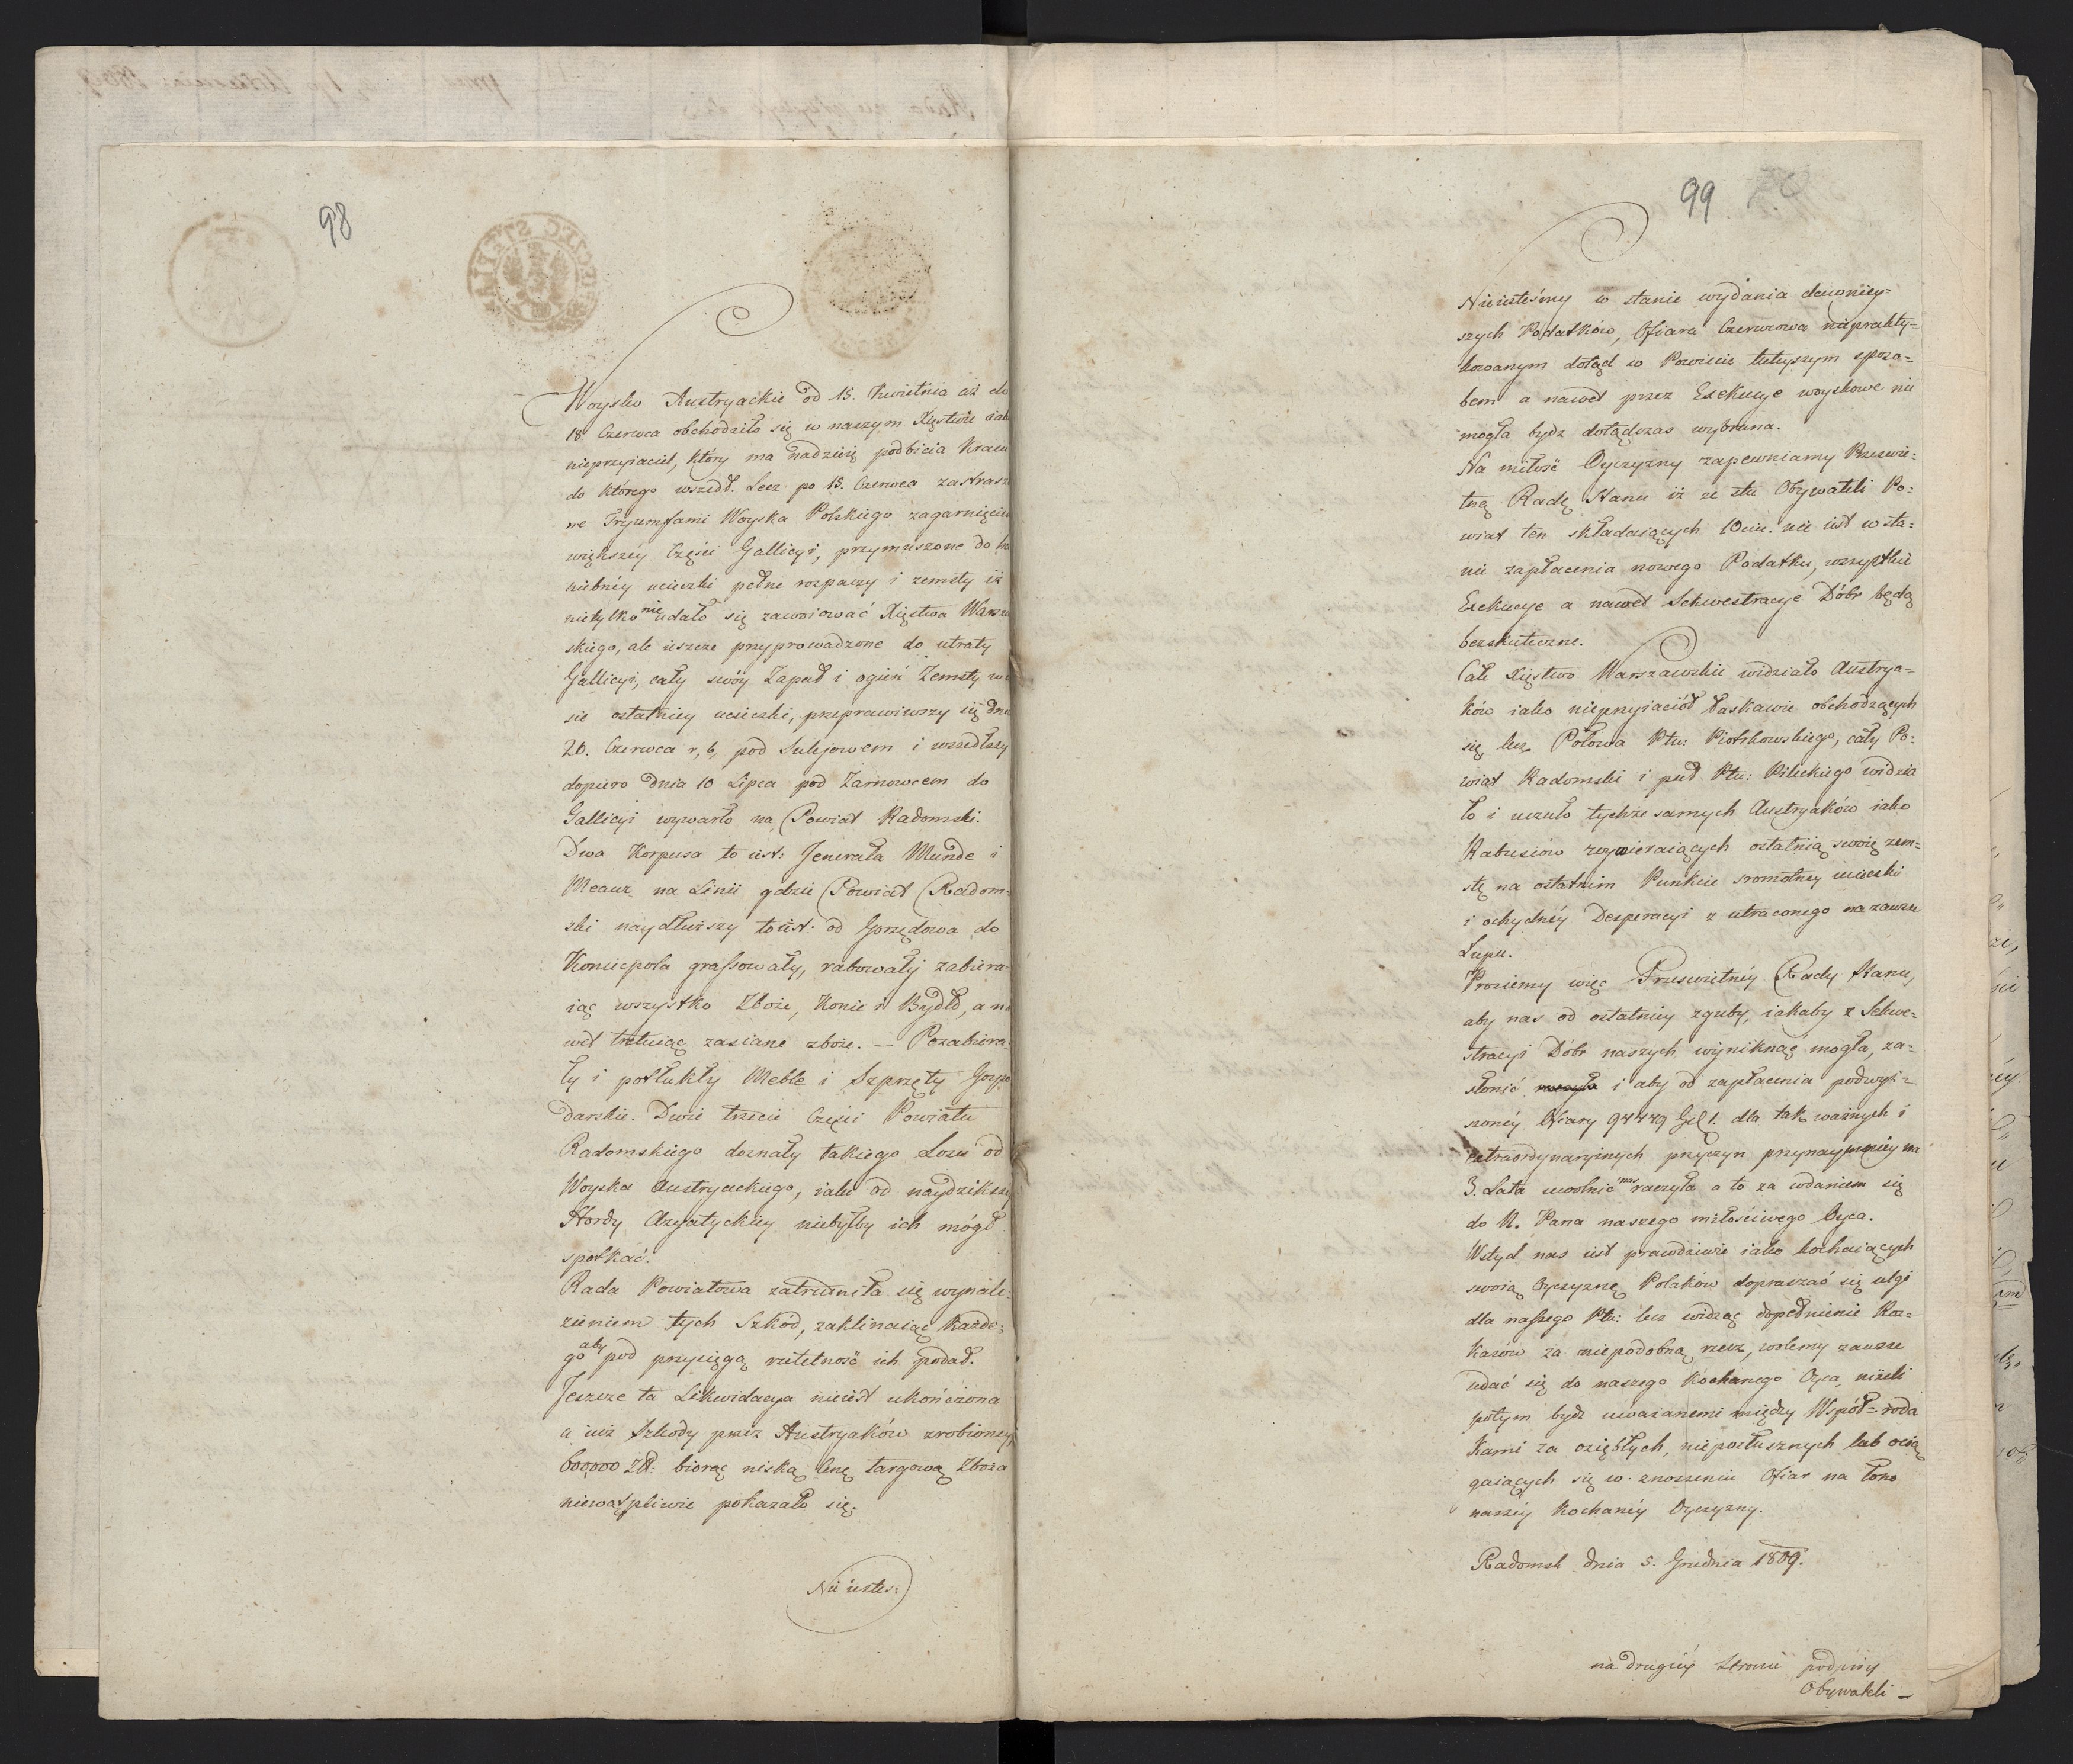 98
Woysko Austryackie od 15. Kwietnia aż do
18 Czerwca obchodziło się w naszym Xięstwie iak
nieprzyiaciel, który ma nadzieię podbicia Kraiu
do którego wszedł. Lecz po 18. Czerwca zastrasz
ne Tryumfami Woyska Polskiego zagarnięciu
większéy Części Gallicyi, przymuszone do
niebnéy ucieczki pełne rozpaczy i zemsty iż
nietylko nie udało się zawoiować Xięstwa Warsza
skiego, ale ieszcze przyprowadzone do utraty
Gallicyi, cały swóy Zapał i ogień Zemsty w
sie ostatniey ucieczki, przeprawiwszy się dnia
26. Czerwca r, b, pod Sulejowem i wszedłszy
dopiero dnia 10 Lipca pod Żarnowcem do
Gallicyi wywarło na Powiat Radomski.
Dwa Korpusa to iest: Jenerała Munde i
Meaux na Linii gdzie Powiat Radom=
ski naydłuższy to iest: od Gorzędowa do
Koniecpola grassowały, rabowały zabiera=
iąc wszystko Zboże, Konie i Bydło, a na
wet tretuiąc zasiane zboże. — Pozabiera=
ły i potłukły Meble i Szprzęty Gospo
darskie. Dwie trzecie Części Powiatu
Radomskiego doznały takiego Losu od
Woyska Austryackiego, iako od naydzikszey
Hordy Azyatyckiey niebyłby ich mógł
spotkać.
Rada Powiatowa zatrudniła się wynale=
zieniem tych Szkód, zaklinaiąc Każde=
go aby pod przysięgą rzetelność ich podał.
Jeszcze ta Likwidacya nieiest ukończona
a iuż Szkody przez Austryaków zrobioney
600000 Zł: biorąc niską Cenę targową Zboża
niewątpliwie pokazało się.
Nie iestes:
99
Nieiesteśmy w stanie wydania dawniey=
szych Podatków, Ofiara Czerwcowa niepraktý=
kowanym dotąd w Powiecie tuteyszym sposo=
bem a nawet przez Exekucye woyskowe nie
mogła bydz dotądczas wybrana.
Na miłość Oyczyzny zapewniamy Prześwie=
tną Radę Stanu iż ze stu Obywateli Po=
wiat ten składaiących 10ciu. nie iest w sta=
nie zapłacenia nowego Podatku, wszystkie
Exekucye a nawet Sekwestracye Dóbr będą
bezskuteczne.
Całe Xięstwo Warszawskie widziało Austrya=
ków iako nieprzyiaciół łaskawie obchodzących
się lecz Połowa Ptu: Piotrkowskiego, cały Po=
wiat Radomski i puł Ptu: Pileckiego widzia
ło i uczuło tychże samych Austryaków iako
Rabusiow wywieraiących ostatnią swoię zem=
stę na ostatnim Punkcie sromotney ucieczki
i ochydnéy Desperacyi z utraconego na zawsze
Łupu.
Prosiemy więc Prześwietnéy Rady Stanu,
aby nas od ostatniey zguby, iakaby z Sekwe=
stracyi Dóbr naszych wyniknąć mogła, za=
słonić i aby od zapłacenia podwyż=
szonéy Ofiary 94449 dla tak ważnych i
extraordynaryinych przyczyn przynaymniey na
3. Lata uwolnić nas raczyła a to za wdaniem się
do N. Pana naszego miłościwego Oyca.
Wstyd nas iest prawdziwie iako kochaiących
swoią Oyczyznę Polaków dopraszać się ulgi
dla naszego Ptu: lecz widząc dopełnienie Roz=
kazów za niepodobną rzecz, wolemy zawsze
udać się do naszego Kochanego Oyca, niżeli
potym bydz uważanemi między Współ=roda
kami za oziębłych, nieposłusznych lub ocią
gaiących się w znoszeniu Ofiar na łono
naszéy Kochanéy Oyczyzny.
Radomsk dnia 5. Grudnia 1809.
na drugiéy Stronie podpisy
Obywateli —